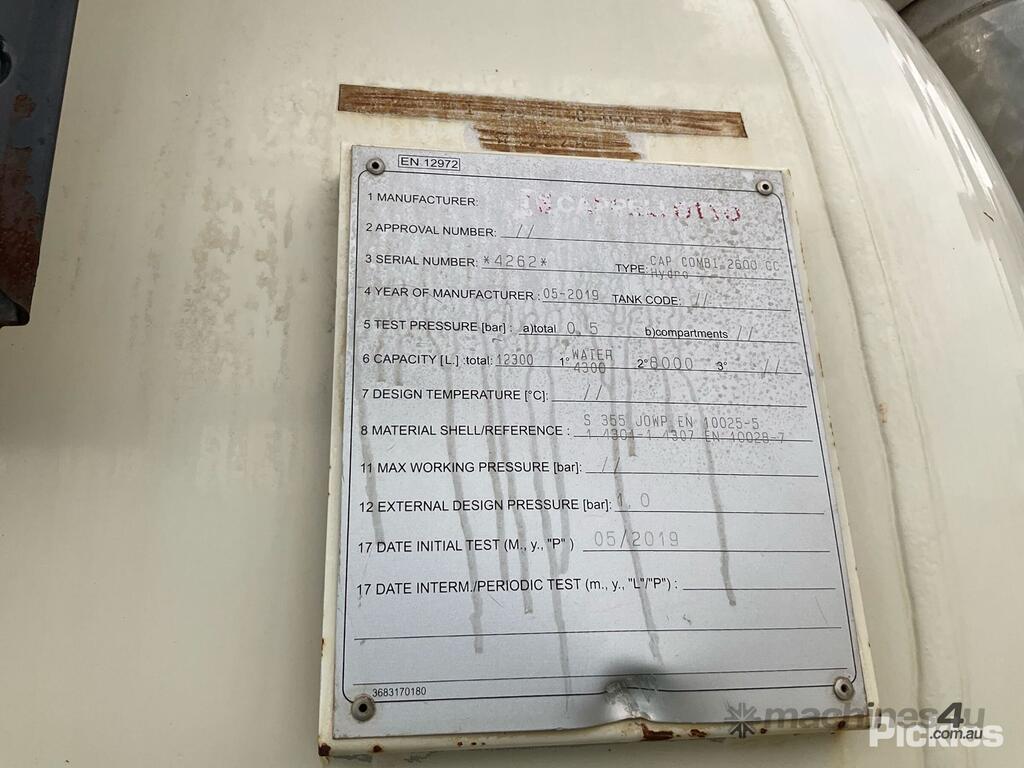 EN 12972
1 MANUFACTURER: CAPPELLOTTO
2 APPROVAL NUMBER: //
3 SERIAL NUMBER: *4262* TYPE: CAP COMBI 2600 CC
Hydro
4 YEAR OF MANUFACTURER: 05-2019 TANK CODE: //
5 TEST PRESSURE [bar] : a)total 0,5 b)compartments //
6 CAPACITY [L.] :total: 12300 1° WATER 4300 2° 8000 3° //
7 DESIGN TEMPERATURE [°C]: //
8 MATERIAL SHELL/REFERENCE : S 355 JOWP EN 10025-5
1.4301-1.4307 EN 10028-7
11 MAX WORKING PRESSURE [bar]: //
12 EXTERNAL DESIGN PRESSURE [bar]: 1,0
17 DATE INITIAL TEST (M., y., "P" ) 05/2019
17 DATE INTERM./PERIODIC TEST (m., y., "L"/"P") :
3683170180
machines4u
.com.au
Pickles